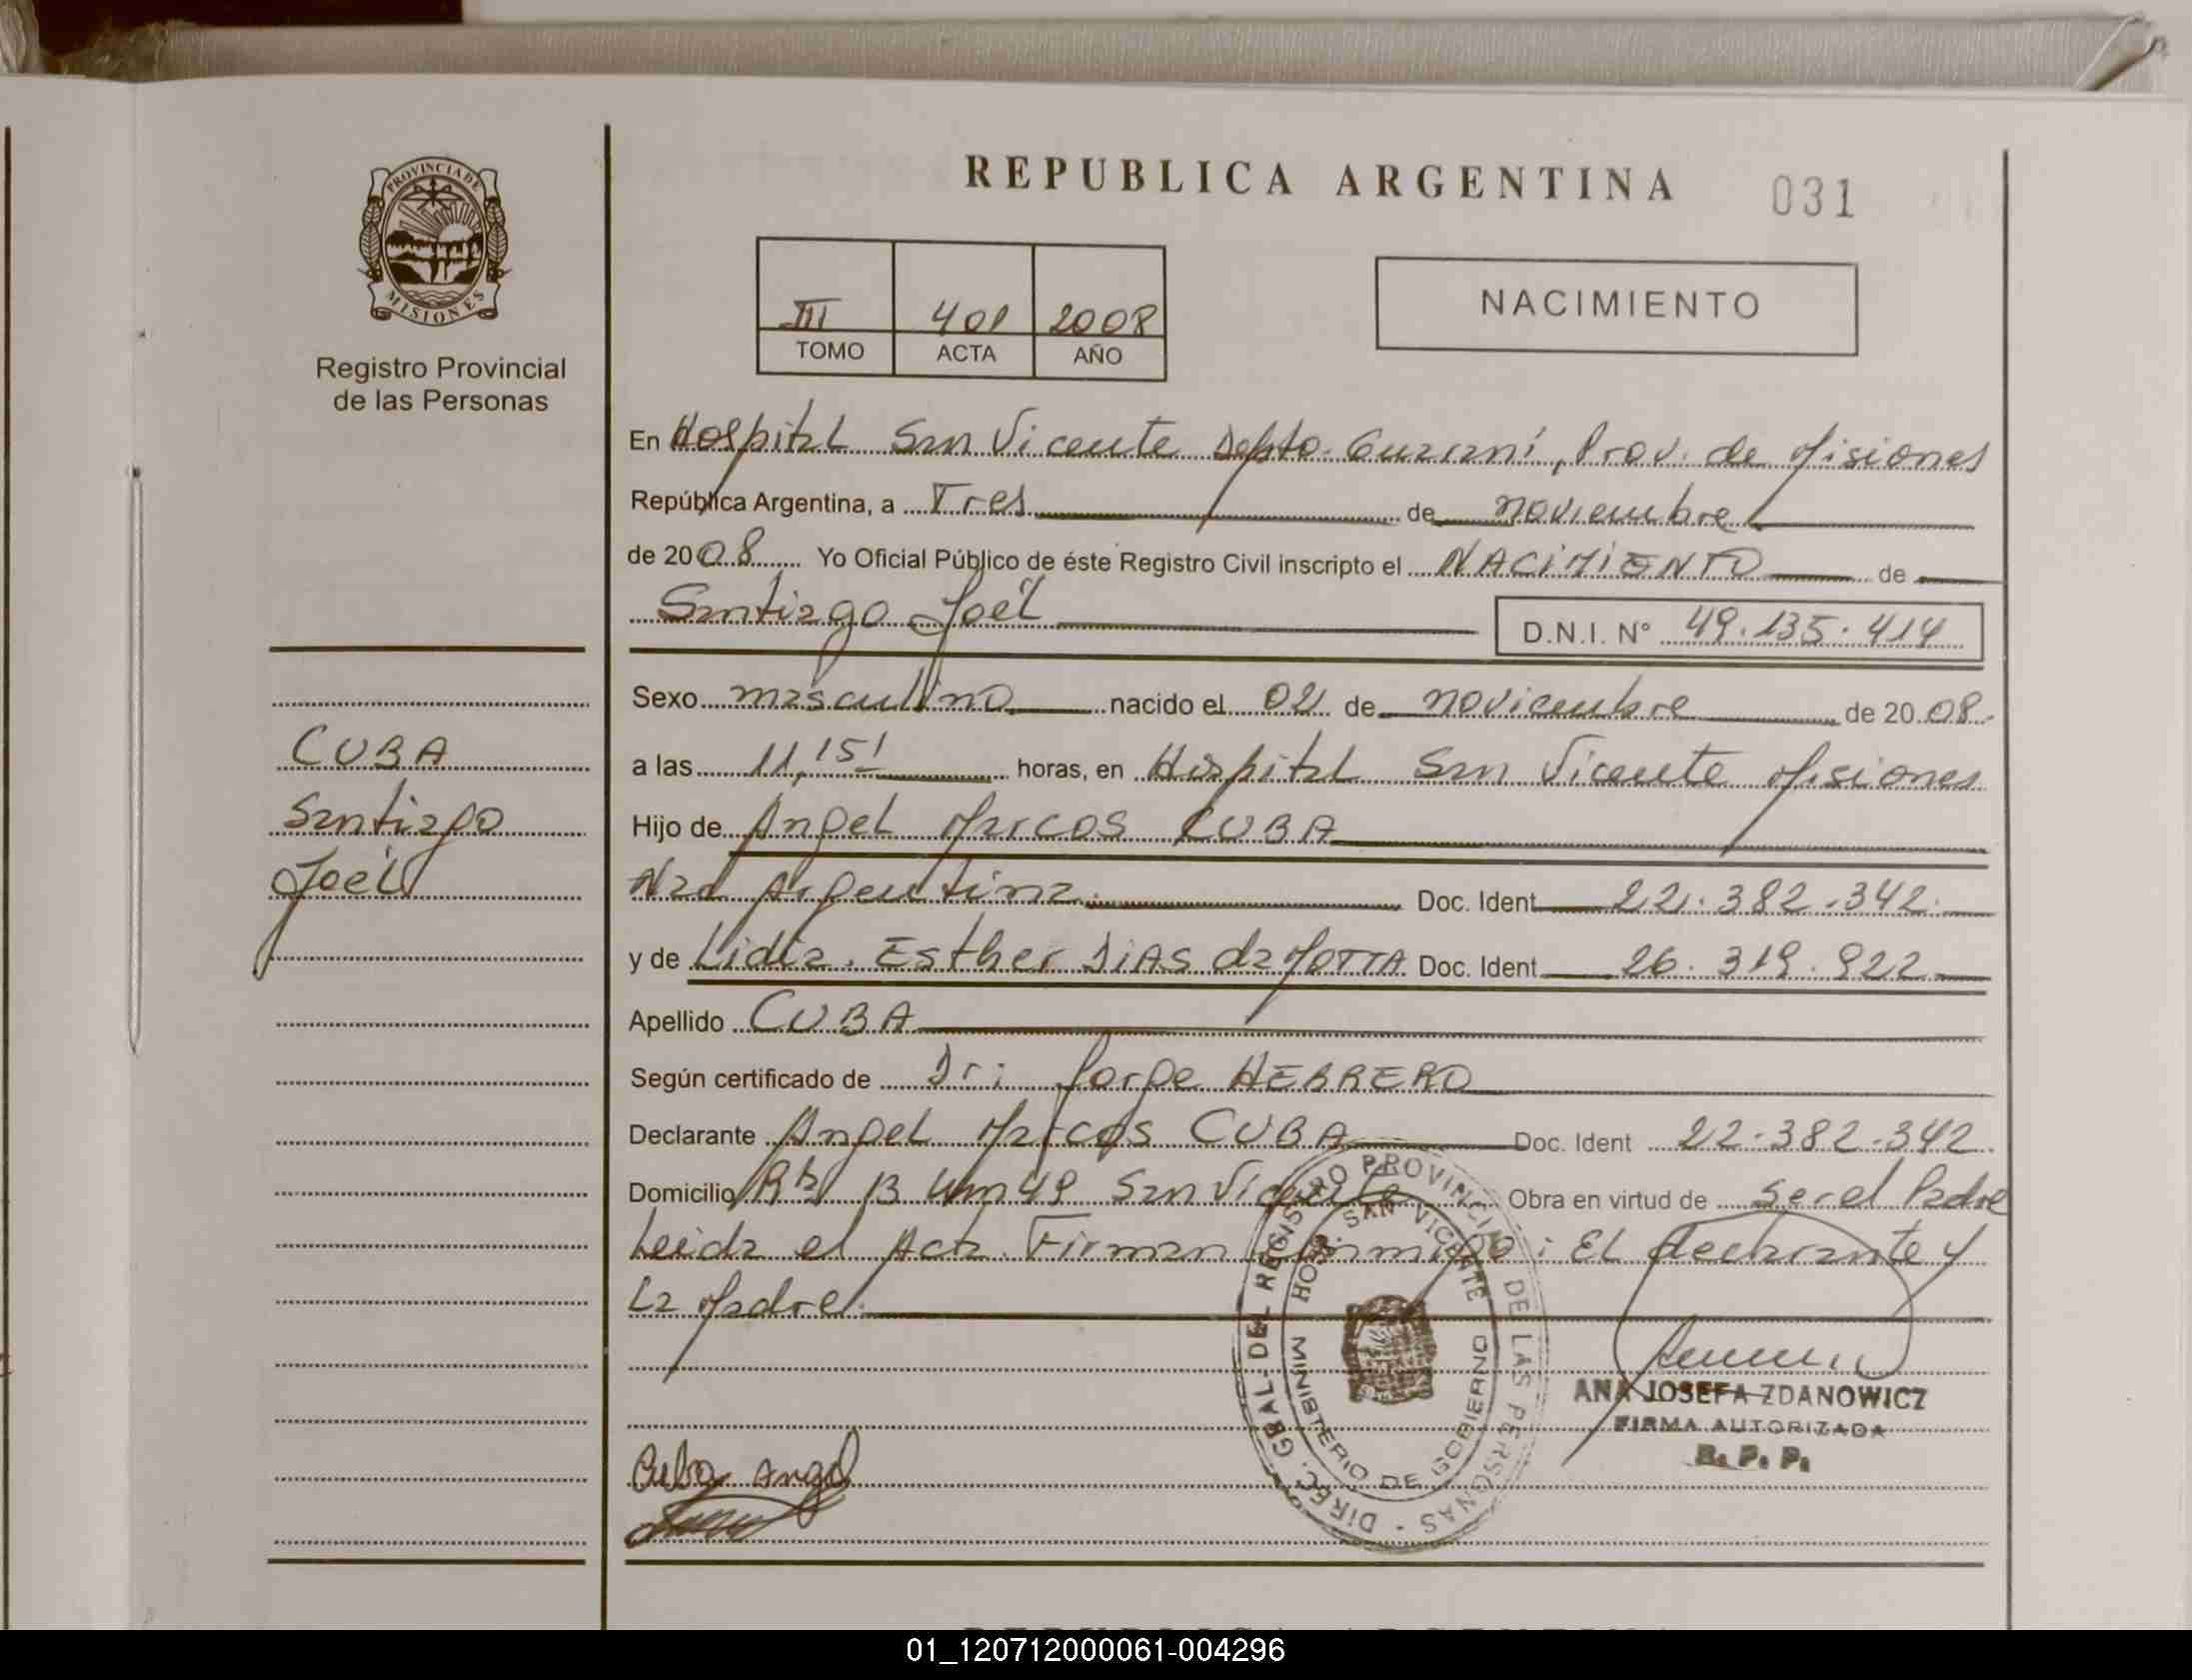 REPUBLICA ARGENTINA
031
PROVINCIA DE
MISIONES
Registro Provincial
de las Personas
III 401 2008
TOMO ACTA AÑO
NACIMIENTO
En Hospital San Vicente Depto. Guaraní, Prov. de Misiones
República Argentina, a Tres de noviembre
de 2008 Yo Oficial Público de éste Registro Civil inscripto el NACIMIENTO de
Santiago Joél
D.N.I. Nº 49.135.414
Sexo masculino nacido el 02 de noviembre de 2008.
a las 11,15' horas, en Hospital San Vicente Misiones
Hijo de Angel Marcos CUBA
Nad Argentina. Doc. Ident 22.382.342.
y de Lidia. Esther DIAS da MOTTA Doc. Ident 26.319.922
Apellido CUBA
Según certificado de Dr: Jorge HERRERO
Declarante Angel Marcos CUBA Doc. Ident 22.382.342
Domicilio 13 Km 49 San Vicente Obra en virtud de ser el Padre
Leida el Acta. Firman Conmigo: El declarante y
La Madre.
CUBA
Santiago
Joél
DIREC. GRAL. DEL REGISTRO PROVINCIAL DE LAS PERSONAS
HOSP. SAN VICENTE
MINISTERIO DE GOBIERNO
ANA JOSEFA ZDANOWICZ
FIRMA AUTORIZADA
R. P. P.
Cuba Angel
01_120712000061-004296